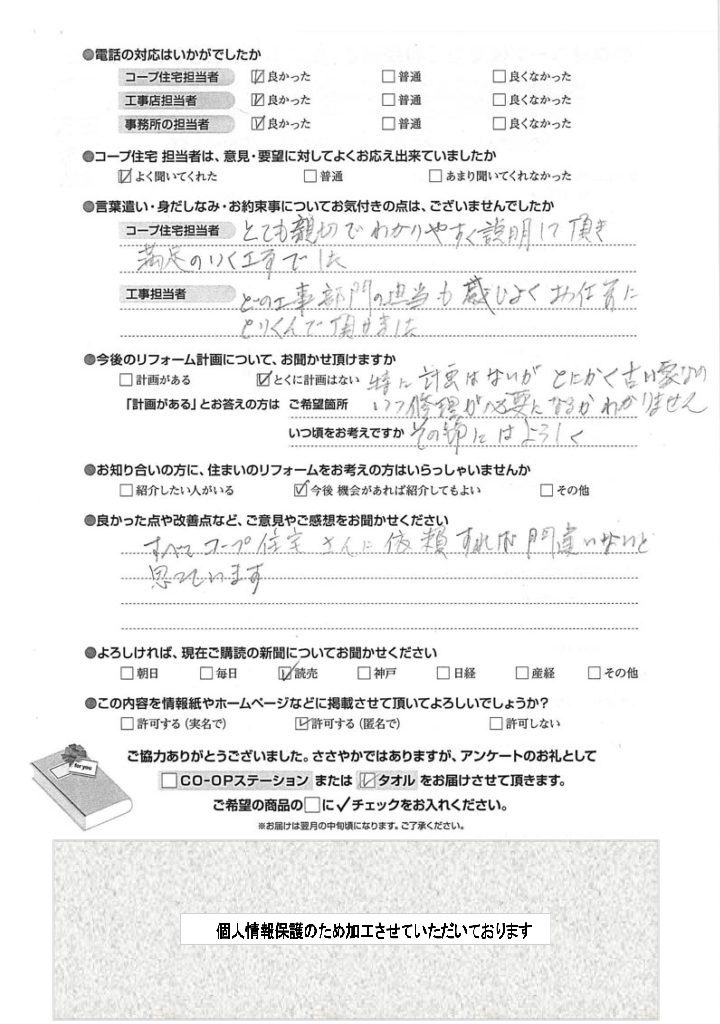 ●電話の対応はいかがでしたか
コープ住宅担当者 ☑良かった □普通 □良くなかった
工事店担当者 ☑良かった □普通 □良くなかった
事務所の担当者 ☑良かった □普通 □良くなかった
●コープ住宅 担当者は、意見・要望に対してよくお応え出来ていましたか
☑よく聞いてくれた □普通 □あまり聞いてくれなかった
●言葉遣い・身だしなみ・お約束事についてお気付きの点は、ございませんでしたか
コープ住宅担当者 とても親切でわかりやすく説明して頂き
満足のいく工事でした
工事担当者 どの工事部門の担当も感じよくお仕事に
とりくんで頂けました
●今後のリフォーム計画について、お聞かせ頂けますか
□計画がある ☑とくに計画はない 特に計画はないがとにかく古い家なの
「計画がある」とお答えの方は ご希望箇所 いつ修理が必要になるかわかりません
いつ頃をお考えですか その節にはよろしく
●お知り合いの方に、住まいのリフォームをお考えの方はいらっしゃいませんか
□紹介したい人がいる ☑今後 機会があれば紹介してもよい □その他
●良かった点や改善点など、ご意見やご感想をお聞かせください
すべてコープ住宅さんに依頼すれば間違いないと
思っています
●よろしければ、現在ご購読の新聞についてお聞かせください
□朝日 □毎日 ☑読売 □神戸 □日経 □産経 □その他
●この内容を情報紙やホームページなどに掲載させて頂いてよろしいでしょうか？
□許可する（実名で） ☑許可する（匿名で） □許可しない
for you
ご協力ありがとうございました。ささやかではありますが、アンケートのお礼として
□CO-OPステーション または ☑タオル をお届けさせて頂きます。
ご希望の商品の□に✓チェックをお入れください。
※お届けは翌月の中旬頃になります。ご了承ください。
個人情報保護のため加工させていただいております